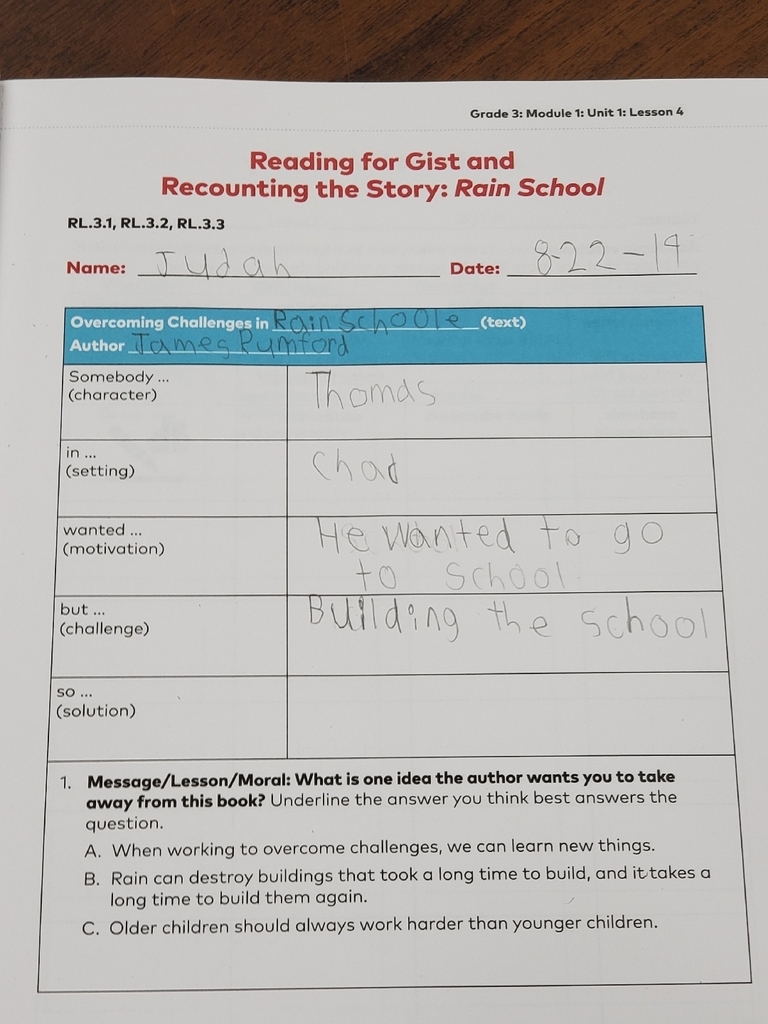 Grade 3: Module 1: Unit 1: Lesson 4
Reading for Gist and
Recounting the Story: Rain School
RL.3.1, RL.3.2, RL.3.3
Name: Judah Date: 8-22-19
Overcoming Challenges in Rain Schoole (text)
Author James Rumford
Somebody ... Thomas
(character)
in ... Chad
(setting)
wanted ... He wanted to go
(motivation) to School
but ... Building the school
(challenge)
so ...
(solution)
1. Message/Lesson/Moral: What is one idea the author wants you to take
away from this book? Underline the answer you think best answers the
question.
A. When working to overcome challenges, we can learn new things.
B. Rain can destroy buildings that took a long time to build, and it takes a
long time to build them again.
C. Older children should always work harder than younger children.